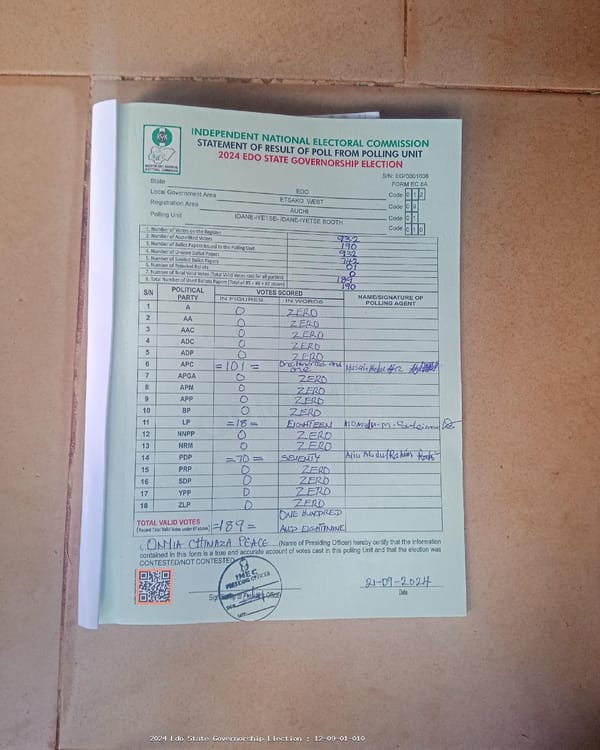 INDEPENDENT NATIONAL ELECTORAL COMMISSION
STATEMENT OF RESULT OF POLL FROM POLLING UNIT
2024 EDO STATE GOVERNORSHIP ELECTION
INEC
INDEPENDENT NATIONAL ELECTORAL COMMISSION
S/N: EG/0001006
FORM EC 8A
State EDO Code 0 1 2
Local Government Area ETSAKO WEST Code 0 9
Registration Area AUCHI Code 0 1
Polling Unit IDANE-IYETSE- IDANE-IYETSE BOOTH Code 0 1 0
1. Number of Voters on the Register 932
2. Number of Accredited Voters 190
3. Number of Ballot Papers Issued to the Polling Unit 932
4. Number of Unused Ballot Papers 742
5. Number of Spoiled Ballot Papers 01
6. Number of Rejected Ballots 0
7. Number of Total Valid Votes (Total Valid Votes cast for all parties) 189
8. Total Number of Used Ballots Papers (Total of #5 + #6 + #7 above) 190
S/N POLITICAL PARTY VOTES SCORED NAME/SIGNATURE OF POLLING AGENT
IN FIGURES IN WORDS
1 A 0 ZERO
2 AA 0 ZERO
3 AAC 0 ZERO
4 ADC 0 ZERO
5 ADP 0 ZERO
6 APC =101= One hundred and one
7 APGA 0 ZERO
8 APM 0 ZERO
9 APP 0 ZERO
10 BP 0 ZERO
11 LP =18= EIGHTEEN
12 NNPP 0 ZERO
13 NRM 0 ZERO
14 PDP =70= SEVENTY
15 PRP 0 ZERO
16 SDP 0 ZERO
17 YPP 0 ZERO
18 ZLP 0 ZERO
TOTAL VALID VOTES =189= ONE HUNDRED
AND EIGHTNINE
I, ONYIA CHINAZA PEACE (Name of Presiding Officer) hereby certify that the information
contained in this form is a true and accurate account of votes cast in this polling Unit and that the election was
CONTESTED/NOT CONTESTED
INEC
PRESIDING OFFICER
Signature of Presiding Officer
21-09-2024
Date
2024 Edo State Governorship Election : 12-09-01-010